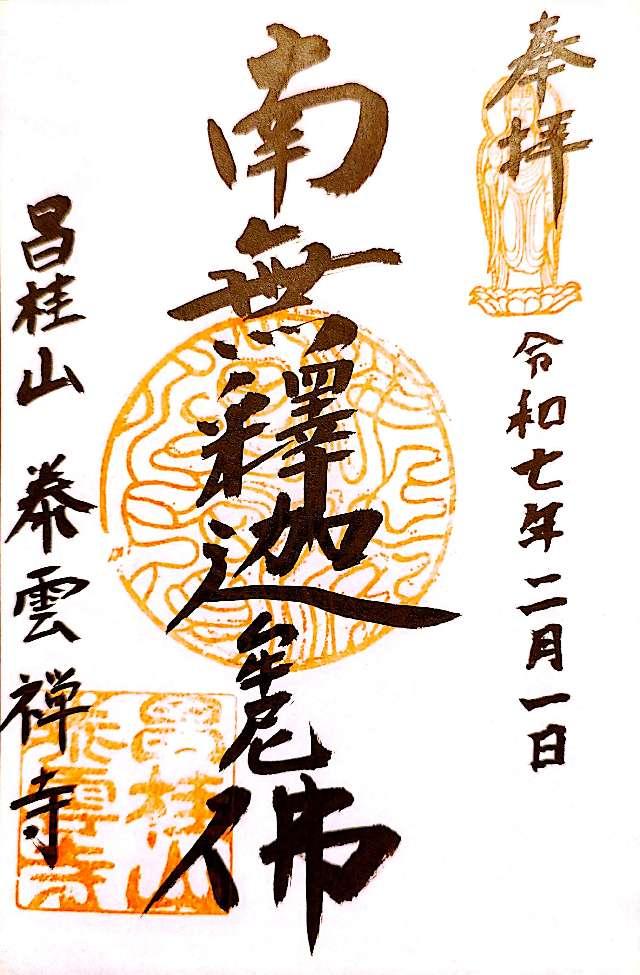 奉拝
令和七年二月一日
南無釋迦牟尼佛
昌桂山 泰雲禅寺
昌桂山
泰雲寺